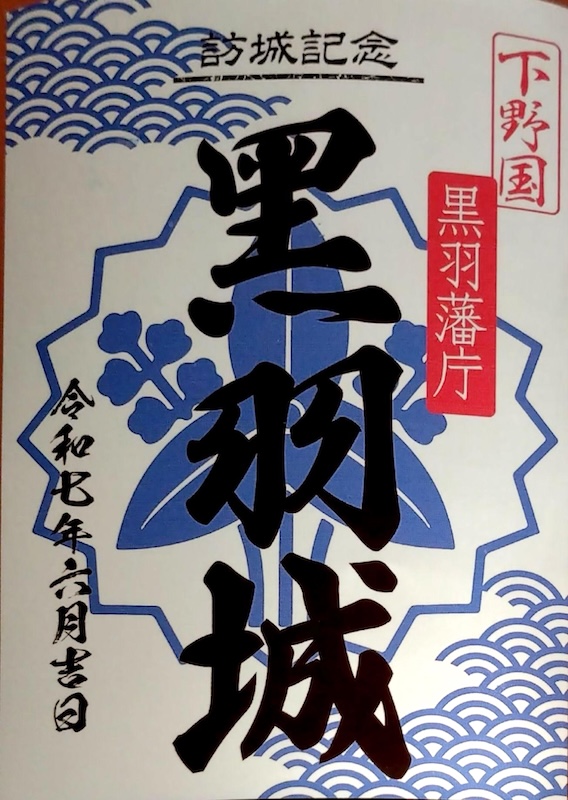 訪城記念
下野国
黒羽藩庁
黒羽城
令和七年六月吉日